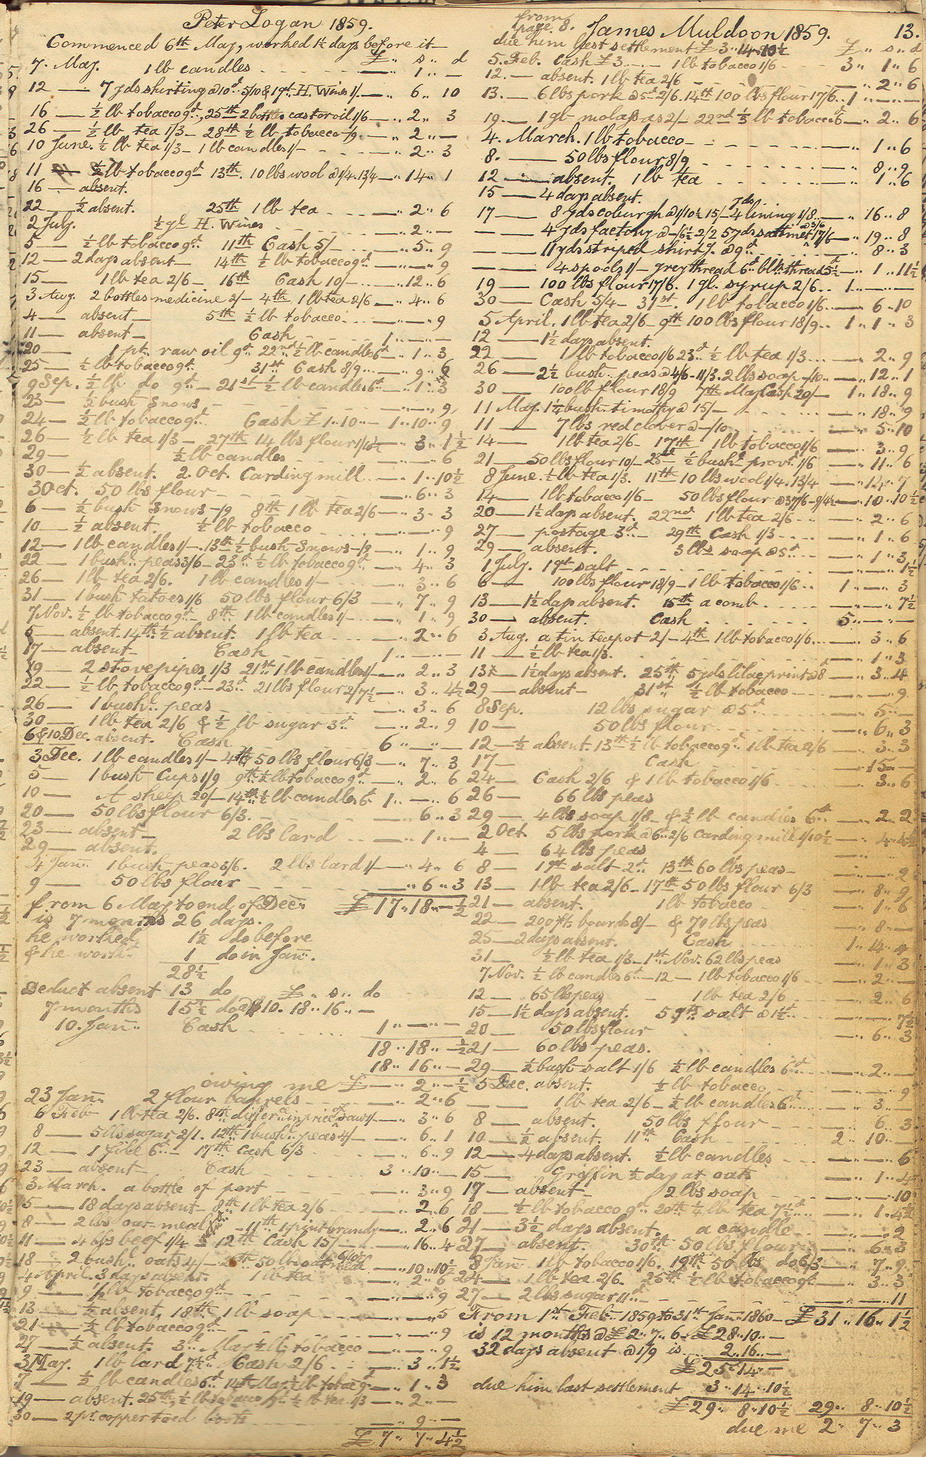 Peter Logan 1859.
Commenced 6th May, worked 1½ days before it
£ s d
7 May 1 lb candles 1 " -
12 7 yds shirting @10d 5/10 & 17th H. Wines 1/- 6 " 10
16 ½ lb tobacco 9d, 25th 2 bottles castor oil 1/6 2 " 3
26 ½ lb tea 1/3 - 28th ½ lb tobacco -/9 2 " -
10 June ½ lb tea 1/3 - 1 lb candles 1/- 2 " 3
11 ½ lb tobacco 9d 13th 10 lbs wool @1/4 13/4 14 " 1
16 absent.
22 ½ absent. 25th 1 lb tea 2 " 6
2 July. ½ gl H. Wines 2 " -
5 ½ lb tobacco 9d 11th Cash 5/- 5 " 9
12 2 days absent 14th ½ lb tobacco 9d " 9
15 1 lb tea 2/6 - 16th Cash 10/- 12 " 6
3 Aug. 2 bottles medicine 2/- 4th 1 lb tea 2/6 4 " 6
4 absent 5th ½ lb tobacco " 9
11 absent Cash 1 " - " -
20 1 pt. raw oil 9d 22nd ½ lb candles 6d 1 " 3
25 ½ lb tobacco 9d 31st Cash 8/9 9 " 6
9 Sep. ½ lb do 9d 21st ½ lb candles 6d 1 " 3
23 ½ bush Snows " 9
24 ½ lb tobacco 9d Cash £1.10 1 " 10 " 9
26 ½ lb tea 1/3 - 27th 14 lbs flour 1/10½ 3 " 1½
29 ½ lb candles " 6
30 ½ absent. 2 Oct. Carding mill 1 " 10½
3 Oct. 50 lbs flour 6 " 3
6 ½ bush Snows -/9 8th 1 lb tea 2/6 3 " 3
10 ½ absent. ½ lb tobacco " 9
12 1 lb candles 1/- 13th ½ bush Snows -/9 1 " 9
22 1 bush. peas 3/6 23rd ½ lb tobacco 9d 4 " 3
26 1 lb tea 2/6. 1 lb candles 1/- 3 " 6
31 1 bush tatoes 1/6 50 lbs flour 6/3 7 " 9
7 Nov. ½ lb tobacco 9d 8th 1 lb candles 1/- 1 " 9
5 absent. 14th ½ absent. 1 lb tea 2 " 6
17 absent Cash 1 " - " -
19 2 stove pipes 1/3 21st 1 lb candles 1/- 2 " 3
22 ½ lb tobacco 9d 23rd 21 lbs flour 2/7½ 3 " 4½
26 1 bush. peas 3 " 6
30 1 lb tea 2/6 & ½ lb sugar 3d 2 " 9
6 & 10 Dec. absent. Cash 6 " - " -
3 Dec. 1 lb candles 1/- 4th 50 lbs flour 6/3 7 " 3
5 1 bush Cups 1/9 9th ½ lb tobacco 9d 2 " 6
10 A sheep 20/- 14th ½ lb candles 6d 1 " - " 6
20 50 lbs flour 6/3. 6 " 3
23 absent 2 lbs lard 1 " -
29 absent.
4 Jan. 1 bush peas 3/6. 2 lbs lard 1/- 4 " 6
9 50 lbs flour 6 " 3
from 6 May to end of Dec. £17 " 18 " -½
is 7 months 26 days.
he worked 1½ do before
& he work 1 do in Jan.
28½
Deduct absent 13 do £ " s " do
7 months 15½ do @ 10. 18 " 16 " -
10. Jan. Cash 1 " - " -
18 " 18 " -½
18 " 16 " -
owing me £ - " 2 " -½
23 Jan. 2 flour barrels 2 " 6
6 Feb 1 lb tea 2/6. 8th differ. in price 1/- 3 " 6
8 5 lbs sugar 2/1. 12th 1 bush. peas 4/- 6 " 1
12 17th Cash 6/3 6 " 9
23 absent Cash 3 " 10 " -
3 March. a bottle of port 3 " 9
5 18 days absent 8th 1 lb tea 2/6 2 " 6
8 2 lbs oat meal 11th 1 pint brandy 2 " 6
11 4 lbs beef 1/4 12th Cash 15/- 16 " 4
18 2 bush. oats 4/- 50 lbs 10 " 10½
4 April. 3 days absent. 1 lb tea 2 " 6
9 ½ lb tobacco " 9
13 ½ absent. 18th 1 lb soap " 5
21 ½ lb tobacco 9d " 9
27 ½ absent. 3 May ½ lb tobacco " 9
3 May. 1 lb lard 7½d. Cash 2/6 3 " 1½
7 ½ lb candles 6d 14th May ½ lb tobac 9d 1 " 3
19 absent. 25th ½ lb tobacco 9d ½ lb tea 1/3 2 " -
30 2 pr. copper toed boots 9 " -
£7 " 7 " 4½
from page 8. James Muldoon 1859. 13.
due him last settlement £3 " 14 " 10½ £ s d
5. Feb. Cash £3 1 lb tobacco 1/6 3 " 1 " 6
12. absent. 1 lb tea 2/6 2 " 6
13. 6 lbs pork @5d 2/6. 14th 100 lbs flour 17/6 1 " - " -
19 1 gl molasses 2/- 22nd ⅓ lb tobacco 6 2 " 6
4. March. 1 lb tobacco 1 " 6
8. 50 lbs flour 8/9 8 " 9
12 absent. 1 lb tea 1 " 6
15 4 days absent.
17 8 yds coburgh @1/10½ 15/- 4 yds lining 1/8 16 " 8
4 yds factory @-/6½ 2/2 5 yds satinet @3/6 17/6 19 " 8
11 yds striped shirtg @9d 8 " 3
4 spools 1/- grey thread 6d blk thread 5½d 1 " 11½
19 100 lbs flour 17/6. 1 gl. syrup 2/6 1 " - " -
30 Cash 5/4 - 31st. 1 lb tobacco 1/6 6 " 10
5 April. 1 lb tea 2/6 9th 100 lbs flour 18/9 1 " 1 " 3
12 1½ days absent.
22 1 lb tobacco 1/6 23rd ½ lb tea 1/3 2 " 9
26 2½ bush. peas @4/6 11/3. 2 lbs soap -/10 12 " 1
30 100 lb flour 18/9 7th May Cash 20/- 1 " 18 " 9
11 May. 1¼ bush timothy @15/- 18 " 9
11 7 lbs red clover @-/10 5 " 10
14 1 lb tea 2/6 17th 1 lb tobacco 1/6 3 " 9
21 50 lbs flour 10/- 25th ½ bush. prov. 1/6 11 " 6
8 June. ½ lb tea 1/3. 11th 10 lbs wool 1/4. 13/4 14 " 7
14 1 lb tobacco 1/6 50 lbs flour @37/6 9/4½ 10 " 10½
20 1½ days absent. 22nd 1 lb tea 2/6 2 " 6
27 postage 3d 29th Cash 1/3 1 " 6
29 absent. 3 lbs soap @5d 1 " 3
1 July. 19d salt 1½
6 100 lbs flour 18/9 1 lb tobacco 1/6 1 " - " 3
13 1½ days absent. 15th a comb 7½
30 absent. Cash 5 " - " -
3 Aug. a tin teapot 2/- 4th 1 lb tobacco 1/6 3 " 6
11 ½ lb tea 1/3. 1 " 3
13 1½ days absent. 25th 5 yds lilac print @8d 3 " 4
29 absent 31st ½ lb tobacco " 9
8 Sep. 12 lbs sugar @5d 5 " -
10 50 lbs flour 6 " 3
12 ½ absent. 13th ½ lb tobacco 9d 1 lb tea 2/6 3 " 3
17 Cash 15 " -
24 Cash 2/6 & 1 lb tobacco 1/6 3 " 6
26 66 lbs peas
29 4 lbs soap 1/8 & ½ lb candles 6d 2 " 2
2 Oct 5 lbs pork @6 2/6 Carding mill 1/10½ 4 " 4½
4 64 lbs peas
8 19d salt 2d 13th 60 lbs peas 2
13 1 lb tea 2/6 17th 50 lbs flour 6/3 8 " 9
21 absent. 1 lb tobacco 1 " 6
22 200 ft. boards 8/- & 70 lbs peas 8 " -
25 2 days absent. Cash 1 " 4 " 4
31 ½ lb tea 1/3 1st Nov. 62 lbs peas 1 " 3
7 Nov. ½ lb candles 6d 12 1 lb tobacco 1/6 2 " -
12 65 lbs peas 1 lb tea 2/6 2 " 6
15 1½ days absent. salt @1½d 7½
20 50 lbs flour 6 " 3
21 60 lbs peas.
29 ½ bush salt 1/6 ½ lb candles 6d 2 " -
5 Dec. absent. ½ lb tobacco " 9
1 lb tea 2/6 ½ lb candles 6d 3 " -
8 absent. 50 lbs flour 6 " 3
10 ½ absent. 11th Cash 2 " 10 " -
12 4 days absent. ½ lb candles " 6
15 Griffin ½ day at oats 1 " 4
17 absent 2 lbs soap 10
18 ½ lb tobacco 9d 20th ½ lb tea 7½d 1 " 4½
21 3½ days absent. a candle 2
27 absent. 30th 50 lbs flour 6 " 3
8 Jan 1 lb tobacco 1/6. 19th 50 lbs do 6/3 7 " 9
24 1 lb tea 2/6. 25th ½ lb tobacco 9d 3 " 3
27 2 lbs sugar 11d 11
From 1st Feb 1859 to 31st Jan 1860 £31 " 16 " 1½
is 12 months @ £2 " 7 " 6 £28 " 10 " -
32 days absent @1/9 is 2 " 16 " -
£25 " 14 " -
due him last settlement 3 " 14 " 10½
£29 " 8 " 10½ 29 " 8 " 10½
due me 2 " 7 " 3